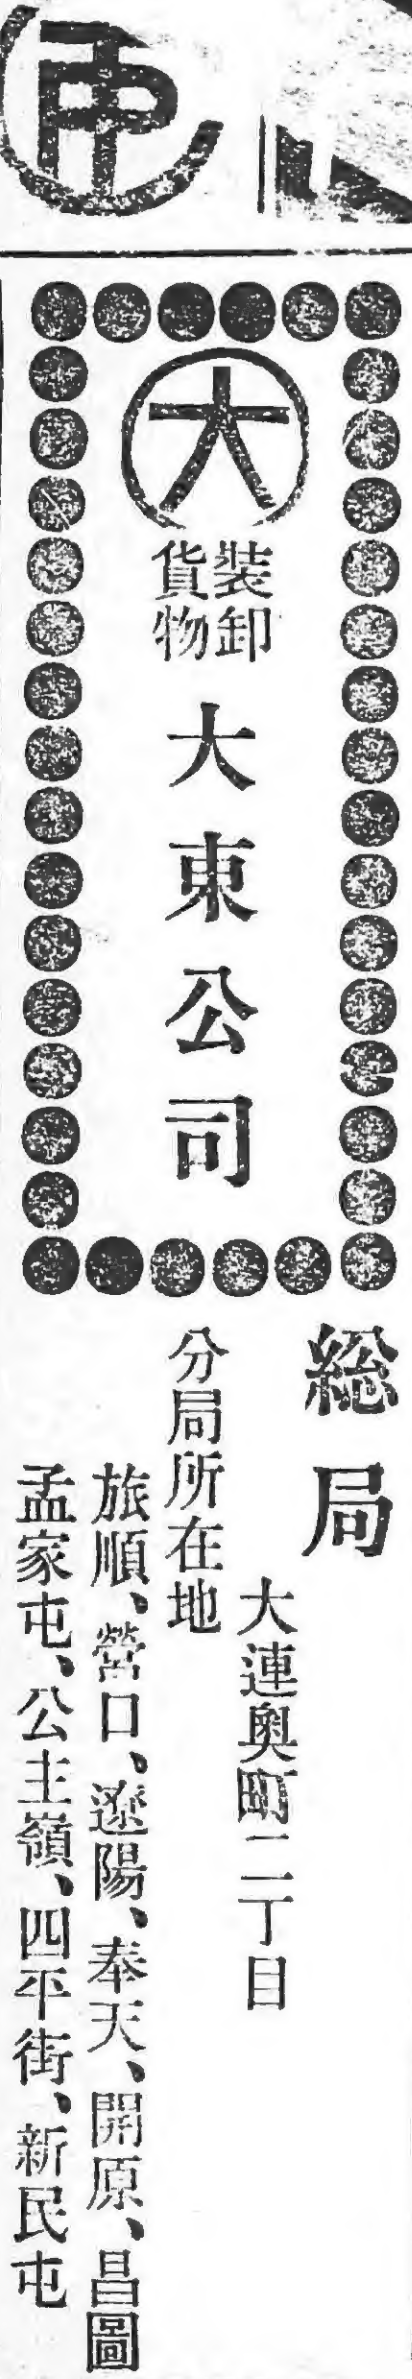 大
装卸
貨物
大東公司
総局
大連奥町二丁目
分局所在地
旅順、營口、遼陽、奉天、開原、昌圖
孟家屯、公主嶺、四平街、新民屯